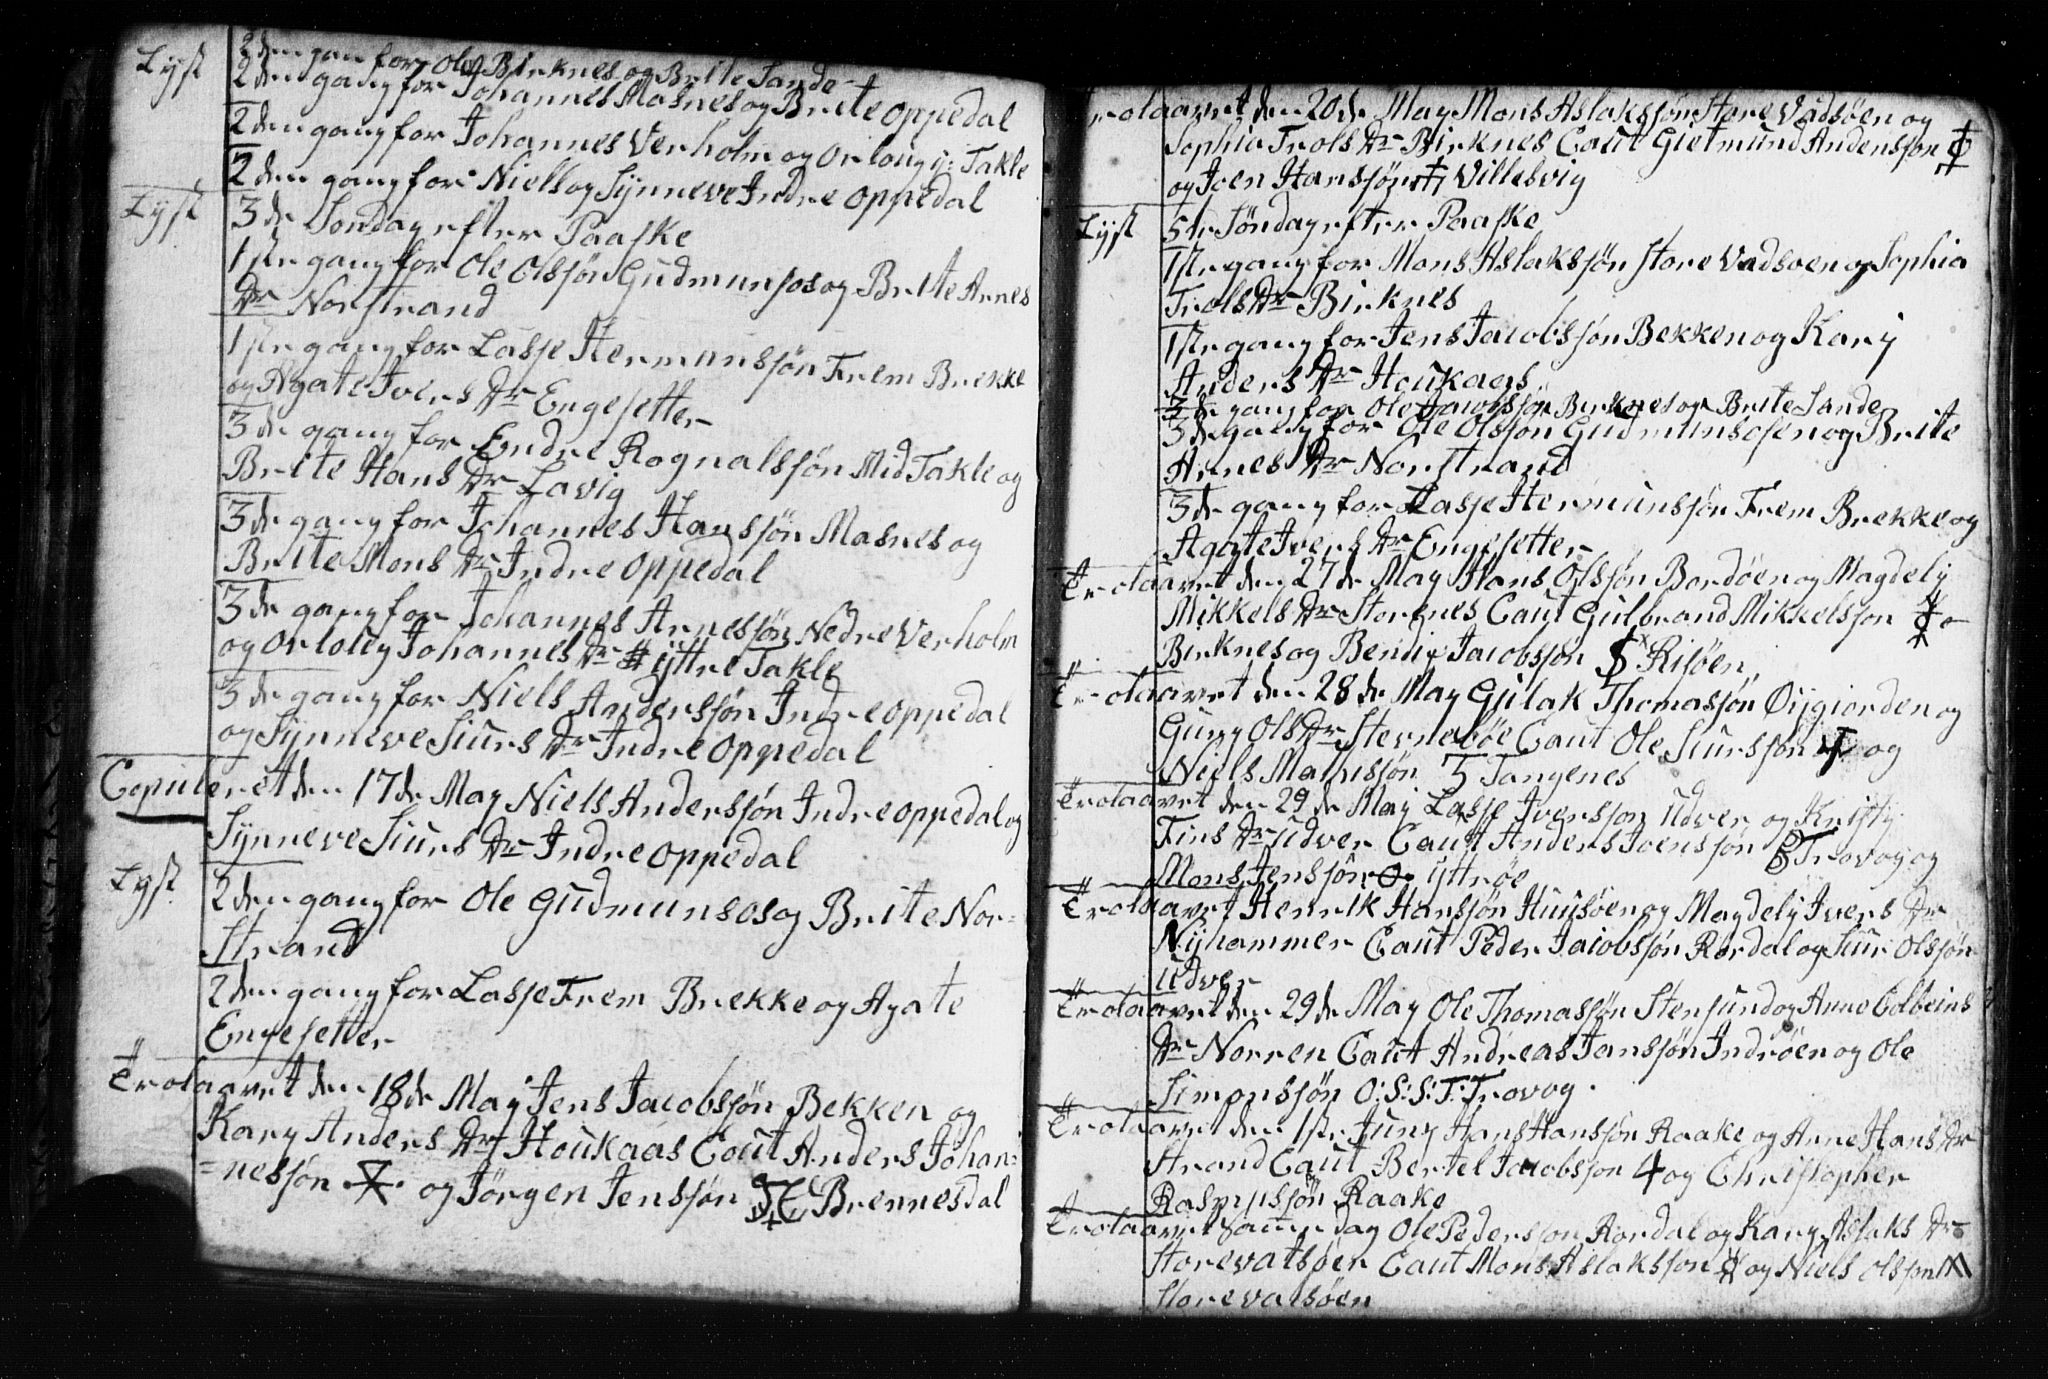 Lyst 2den gan for Ole Birknes og Brite Sande
2den gang for Johannes Masnes og Brite Oppedal
2den gang for Johannes Verholm og Orlong ij: Takle
2den gang for Niels og Synneve Indre Oppedal
Lyst 3de Søndag efter Paaske
1ste gang for Ole Olssøn Gudmunsos og Brite Arnes
Dr Norstrand
1ste gang for Lasse Hermanssøn Frem Brekke
og Agate Ivers Dr Engesetter
3de gang for Endre Rognalssøn Mid Takle og
Brite Hans Dr Lavig
3de gang for Johannes Hanssøn Masnes og
Brite Mons Dr Indre Oppedal
3de gang for Johannes Arnessøn Nedre Verholm
og Orloug Johannes Dr Yttre Takle
3de gang for Niels Anderssøn Indre Oppedal
og Synneve Siurs Dr Indre Oppedal
Copuleret den 17de May Niels Anderssøn Indre Oppedal og
Synneve Siurs Dr Indre Oppedal
Lyst 2den gang for Ole Gudmunsos og Brite Nor=
Strand
2den gang for Lasse Frem Brekke og Agate
Engesetter
Trolaavet den 18de May Jens Jacobssøn Bekken og
Kary Anders Dr Houkaas Caut Anders Johan=
=nessøn og Jørgen Jenssøn Brennesdal
Trolaavet den 20de May Mons Aslakssøn Store Vadsøen og
Sophia Trols Dr Birknes Caut Gietmund Andenssøn
og Joen Hanssøn Villesvig
Lyst 5te Søndag efter Paaske
1ste gang for Mons Aslakssøn Store Vadsøen og Sophia
Trols Dr Birknes
1ste gang for Jens Jacobssøn Bekken og Kary
Anders Dr Houkaas
3de gang for Ole Jacobssøn Birknes og Brite Sande
3de gang for Ole Olssøn Gudmunsosen og Brite
Arnes Dr Norstrand
3de gang for Lasse Hermunssøn Frem Brekke og
Agate Ivers Dr Engesetter
Trolaavet den 27de May Hans Olssøn Bordøen og Magdely
Mikkels Dr Stornes Caut Gulbrand Mikkelssøn
Birknes og Bendix Jacobssøn Risøen
Trolaavet den 28de May Gulak Thomassøn Øygiorden og
Guny Ols Dr Sternebøe Caut Ole Siurssøn og
Niels Mathissøn Tangenes
Trolaavet den 29de May Lasse Iverssøn Udver og Kristy
Fins Dr Udver Caut Anders Joenssøn Trovog og
Mons Jenssøn Yttrøe
Trolaavet Henrik Hanssøn Huusøen og Magdely Ivers Dr
Nyhammer Caut Peder Jacobssøn Rordal og Siur Olssøn
Udver
Trolaavet den 29de May Ole Thomassøn Stensund og Anne Colbeins
Dr Norren Caut Andreas Janssøn Indrøen og Ole
Simonssøn O:S:S:T: Trovog.
Trolaavet den 1ste Juny Hans Hanssøn Raake og Anne Hans Dr
Strand Caut Bertel Jacobssøn 4 og Christopher
Rasmussøn Raake
Trolaavet samme dag Ole Pederssøn Rordal og Kary Aslaks Dr
Storevatsøen Caut Mons Aslakssøn og Niels Olssøn
Storevatsøen